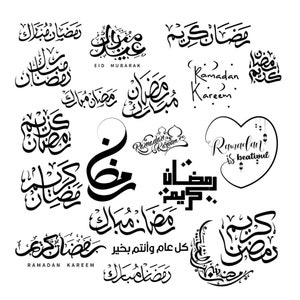 رمضان مبارك
عيد مبارك
EID MUBARAK
رمضان كريم
رمضان مبارك
Ramadan
Kareem
رمضان كريم
رمضان مبارك
رمضان مبارك
رمضان كريم
Ramadan
Kareem
Ramadan
is beatiput
رمضان
رمضان كريم
رمضان كريم
رمضان مبارك
رمضان كريم
كل عام وأنتم بخير
رمضان كريم
RAMADAN KAREEM
رمضان مبارك